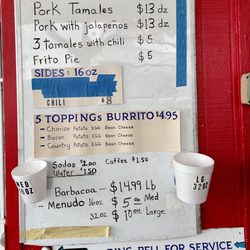 Pork Tamales $13 dz
Pork with jalapeños $13 dz
3 tamales with chili $5
Frito Pie $5
SIDES: 16oz
CHILI $8
5 TOPPINGS BURRITO $4.95
- Chorizo Potato EGG Bean Cheese
- Bacon Potato EGG Bean Cheese
- Country Potato EGG Bean Cheese
Sodas $2.00 Coffee $1.50
Water $1.50
MED
16OZ
LG
32OZ
Barbacoa - $14.99 Lb
- Menudo 16oz $5.00 Med
32oz $10.00 Large
RING BELL FOR SERVICE